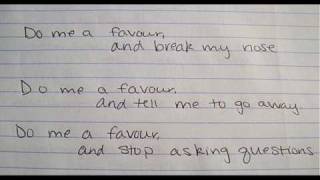 Do me a favour,
and break my nose
Do me a favour,
and tell me to go away
Do me a favour,
and stop asking questions